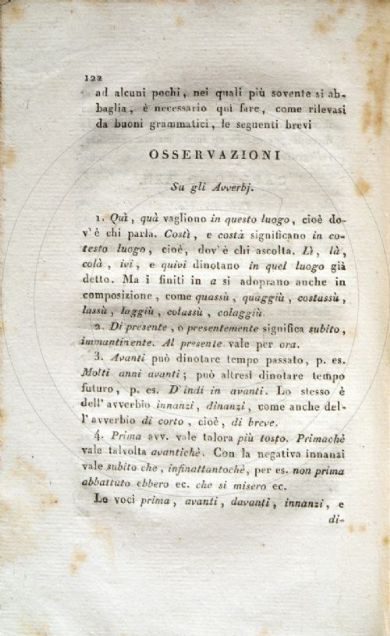 122
ad alcuni pochi, nei quali più sovente si ab-
baglia, è necessario qui fare, come rilevasi
da buoni grammatici, le seguenti brevi
OSSERVAZIONI
Su gli Avverbj.
1. Quì, quà vagliono in questo luogo, cioè do-
v'è chi parla. Costì, e costà significano in co-
testo luogo, cioè, dov'è chi ascolta. Lì, là,
colà, ivi, e quivi dinotano in quel luogo già
detto. Ma i finiti in a si adoprano anche in
composizione, come quassù, quaggiù, costassù,
lassù, laggiù, colassù, colaggiù.
2. Di presente, o presentemente significa subito,
immantinente. Al presente vale per ora.
3. Avanti può dinotare tempo passato, p. es.
Molti anni avanti; può altresì dinotare tempo
futuro, p. es. D'indi in avanti. Lo stesso è
dell'avverbio innanzi, dinanzi, come anche del-
l'avverbio di corto, cioè, di breve.
4. Prima avv. vale talora più tosto. Primachè
vale talvolta avantichè. Con la negativa innanzi
vale subito che, infinattantochè, per es. non prima
abbattuto ebbero ec. che si misero ec.
Le voci prima, avanti, davanti, innanzi, e
di-